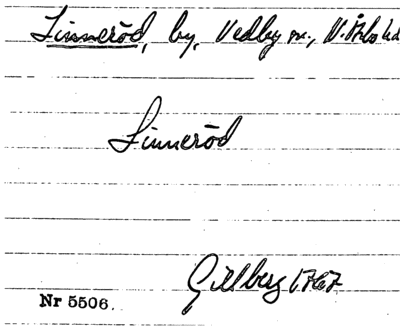 Linneröd, by, Vedby sn., N. Åsbo hd
Linneröd
Gillberg 1767
Nr 5506.